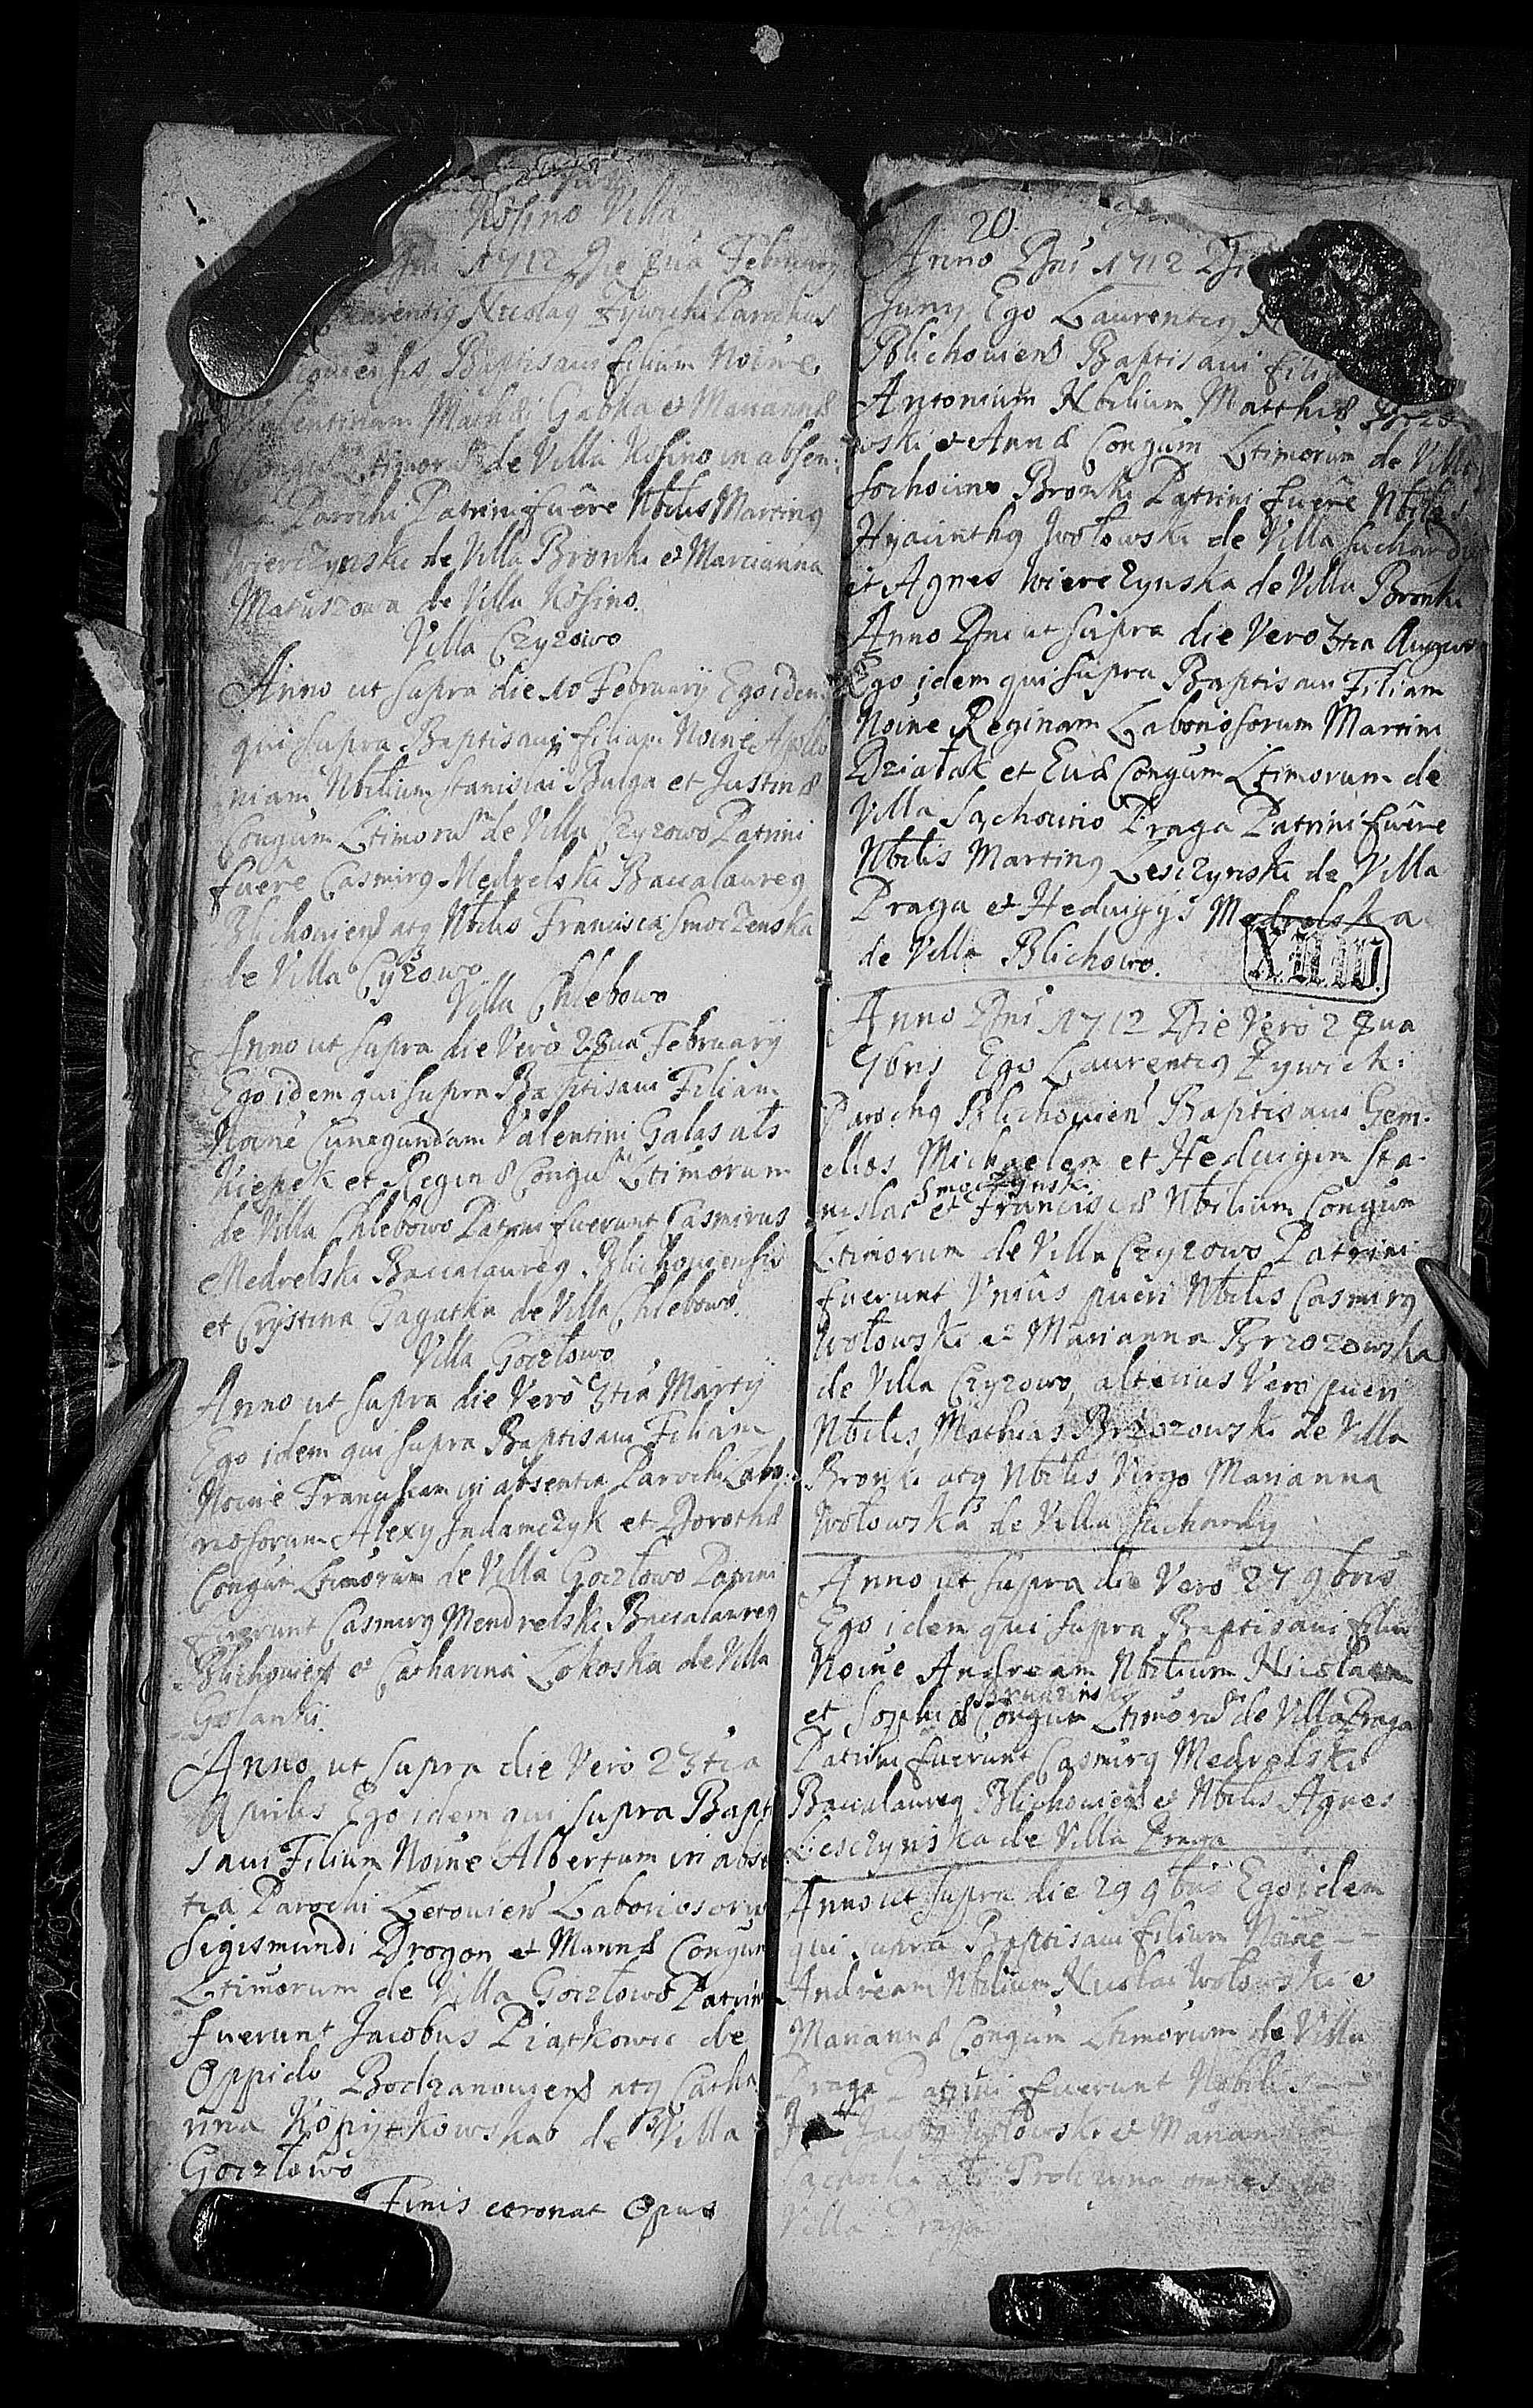 Kosino Villa
Dni 1712 Die 2da February
Laurentig Nicolag Zywicki Parochus
Baptisaui filium Noine
Valentinum Mathei Gabka et Mariannæ
Ltimorum de Villa Kosino in absen:
Parochi Patrini fuêre Nbilis Marting
Wierczynski de Villa Bronki et Marcianna
Matuszowa de Villa Kosino.
Villa Czyzowo
Anno ut supra die 10 February Ego idem
qui supra Baptisaui filiam Noine Apollo
niam Nbilium Stanislai Bulga et Justinæ
Congum Ltimorum de Villa Czyzowo Patrini
fuêre Casmirg Medrelski Baccalaureg
Blichouiens atq Nbilis Francisca Smoczenska
de Villa Cyzowo
Villa Chlebowo
Anno ut supra die Vero 28ua February
Ego idem qui supra Baptisaui Filiam
Noine Cunegundam Valentini Galas als
Kiepek et Reginæ Congum Ltimorum
de Villa Chlebowo Patrini fuerunt Casmirus
Medrelski Baccalaureg Blichouiensis
et Crystina Gagatka de Villa Chlebowo
Villa Goczlowo
Anno ut supra die Vero 3tia Martij
Ego idem qui supra Baptisaui Filiam
Noine Franciscam in absentia Parochi Labo:
riosorum Alexy Jadamczyk et Dorothæ
Congum Ltimorum de Villa Goczłowo Patrini
Fuerunt Casmirg Mendrelski Baccalaureg
Blichouiens et Catharina Lokoska de Villa
Golanki
Anno ut supra die Vero 23tia
Aprilis Ego idem qui supra Bapt
saui Filium Noine Albertum in abse
tia Parochi Letouiens Laboriosorum
Sigismundi Drogon et Mariannæ Congum
Ltimorum de Villa Goczłowo Patrini
fuerunt Jacobus Piatkowic de
Oppido Bodzanouiens atq Catha
rina Kopiytkowska de Villa
Goczłowo
Finis coronat Opus
20.
Anno Dni 1712 Die
Juny Ego Laurentig N
Blichouiens Baptisaui fili
Antonium Nbilium Matthiæ Brzo
wski et Annæ Congum Ltimorum de Villa
Sochouino Bronki Patrini fuêre Nbiles
Hyacinthg Wołowski de Villa Suchardy
et Agnes Wierczynska de Villa Bronki
Anno Dni ut supra die Vero 3tia Augus
Ego idem qui supra Baptisaui Filiam
Noine Reginam Laboriosorum Martini
Dziatak et Euæ Congum Ltimorum de
Villa Sachouino Praga Patrini fuêre
Nbilis Marting Lesczynski de Villa
Praga et Heduigys Medrelska
de Villa Blichowo.
X.D.W.
Anno Dni 1712 Die Vero 22ua
9bris Ego Laurentig Zywicki
Parochg Blichouiens Baptisaui Gem-
ellos Michaelem et Heduigim Sta-
Smoczynski
nislai et Franciscæ Nbilium Congum
Ltimorum de Villa Czyzowo Patrini
fuerunt Vnius pueri Nbilis Casmirg
Wołowski et Marianna Brzozowska
de Villa Czyzowo, alterius Vero pueri
Nbilis Mathias Brzozowski de Villa
Bronki atq Nbilis Virgo Marianna
Wołowska de Villa Suchardy
Anno ut supra die Vero 27 9bris
Ego idem qui supra Baptisaui filium
Noine Andream Nbilium Nicolai
Brudzinski
et Sophiæ Congum Ltimorum de Villa Praga
Patrini fuerunt Casmirg Medrelski
Baccalaureg Blichouiens et Nbilis Agnes
Liesczynska de Villa Praga
Anno ut supra die 29 9bris Ego idem
qui supra Baptisaui filium Noine
Andream Nbilium Nicolai Wołowski et
Mariannæ Congum Ltimorum de Villa
Praga Patrini fuerunt Nobilis
Jacobg Wołowski et Marian
omnes de
Villa Praga